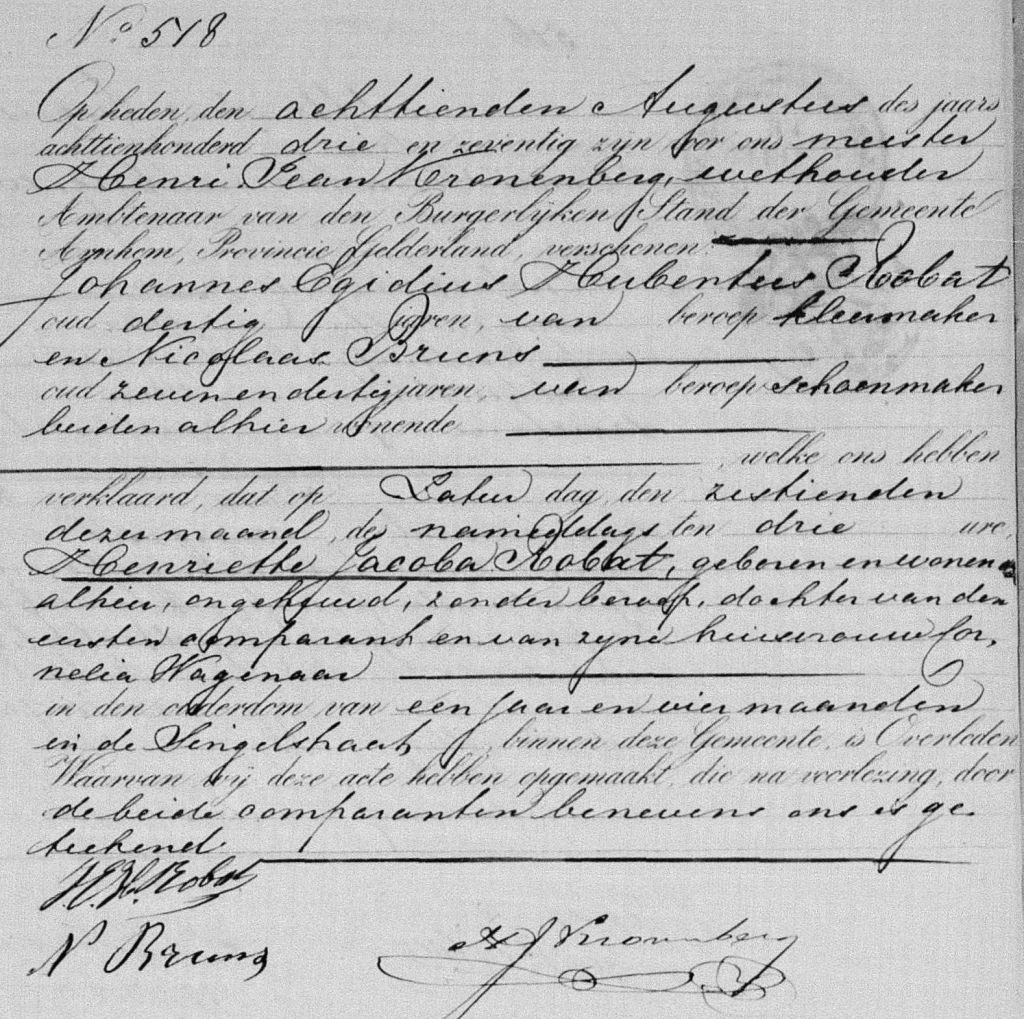 No. 518
Op heden, den achttienden Augustus des jaars
achttienhonderd drie en zeventig zijn voor ons meester
Henri Jean Kronenberg, wethouder
Ambtenaar van den Burgerlijken Stand der Gemeente
Arnhem, Provincie Gelderland, verschenen:
Johannes Egidius Hubertus Robat
oud dertig jaren, van beroep kleermaker
en Nicolaas Bruns
oud zevenendertig jaren, van beroep schoenmaker
beiden alhier wonende
, welke ons hebben
verklaard, dat op Zatur dag, den zestienden
dezer maand, des namiddags ten drie ure,
Henriette Jacoba Robat, geboren en wonende
alhier, ongehuwd, zonder beroep, dochter van den
eersten comparant en van zijne huisvrouw Cor,
nelia Wagenaar
in den ouderdom van een jaar en vier maanden
in de Singelstraat, binnen deze Gemeente, is Overleden
Waarvan wij deze acte hebben opgemaakt, die na voorlezing, door
de beide comparanten benevens ons is ge,
teekend.
J.E.H. Robat
N Bruns
H J Kronenberg